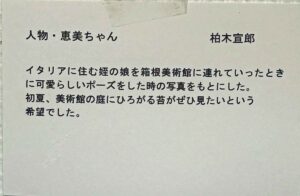 人物・恵美ちゃん　　　　　柏木宣郎
イタリアに住む姪の娘を箱根美術館に連れていったとき
に可愛らしいポーズをした時の写真をもとにした。
初夏、美術館の庭にひろがる苔がぜひ見たいという
希望でした。